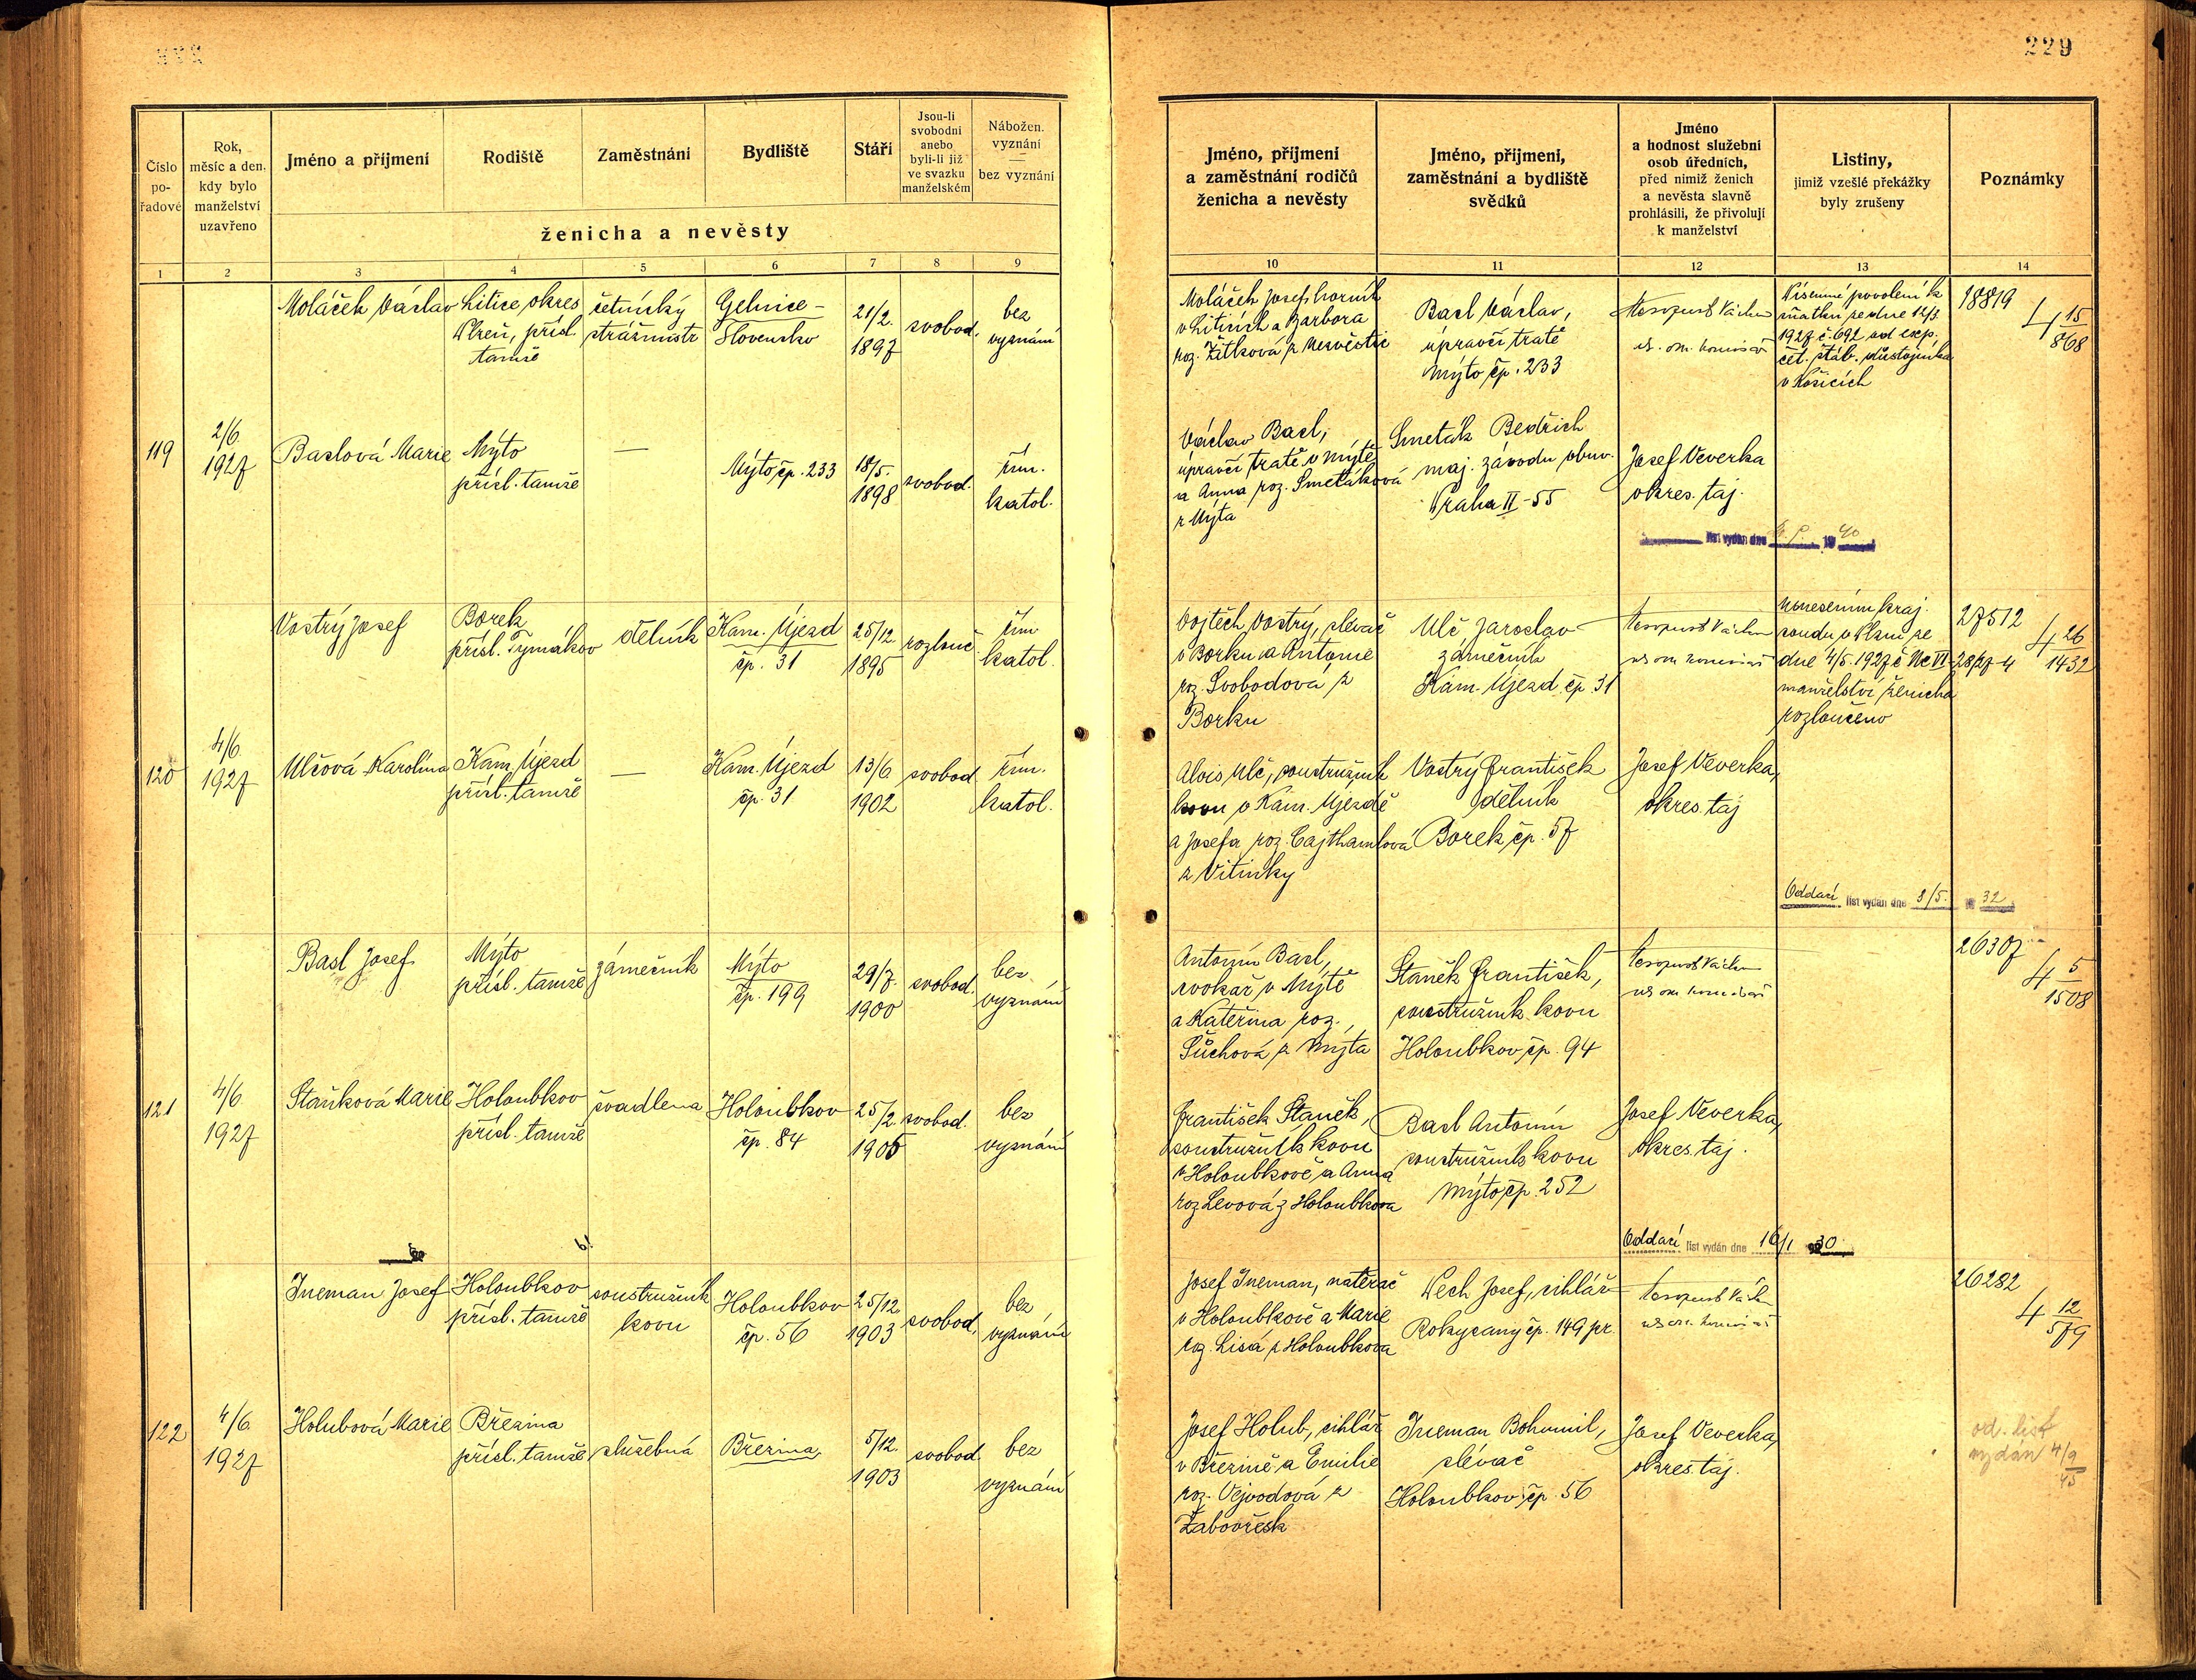 229
Číslo
po-
řadové
Rok,
měsíc a den,
kdy bylo
manželství
uzavřeno
Jméno a příjmení
Rodiště
Zaměstnání
Bydliště
Stáří
Jsou-li
svobodni
anebo
byli-li již
ve svazku
manželském
Nábožen.
vyznání
—
bez vyznání
ženicha a nevěsty
1 2 3 4 5 6 7 8 9
Moláček Václav
Litice okres
Plzeň, přísl.
tamže
četnický
strážmistr
Gelnice -
Slovensko
21/2.
1897
svobod.
bez
vyznání
119
2/6.
1927
Baslová Marie
Mýto
přísl. tamže
—
Mýto čp. 233
18/5.
1898
svobod.
řím.
katol.
Vostrý Josef
Borek,
přísl. Tymákov
dělník
Kam. Újezd
čp. 31
25/12
1895
rozlouč.
řím.
katol.
120
4/6.
1927
Ulčová Karolína
Kam. Újezd
přísl. tamže
—
Kam. Újezd
čp. 31
13/6
1902
svobod.
řím.
katol.
Basl Josef
Mýto
přísl. tamže
zámečník
Mýto
čp. 199
29/7.
1900
svobod.
bez
vyznání
121
4/6.
1927
Staňková Marie
Holoubkov
přísl. tamže
švadlena
Holoubkov
čp. 84
25/2.
1905
svobod.
bez
vyznání
Ineman Josef
Holoubkov
přísl. tamže
soustružník
kovu
Holoubkov
čp. 56
25/12
1903
svobod.
bez
vyznání
122
4/6.
1927
Holubová Marie
Březina
přísl. tamže
služebná
Březina
5/12.
1903
svobod.
bez
vyznání
Jméno, příjmení
a zaměstnání rodičů
ženicha a nevěsty
Jméno, příjmení,
zaměstnání a bydliště
svědků
Jméno
a hodnost služební
osob úředních,
před nimiž ženich
a nevěsta slavně
prohlásili, že přivolují
k manželství
Listiny,
jimiž vzešlé překážky
byly zrušeny
Poznámky
10 11 12 13 14
Moláček Josef, horník
v Liticích a Barbora
roz. Žitková z Nezvěstic
Basl Václav,
úpravčí tratě
Mýto čp. 233
Písemné povolení k
sňatku ze dne 12/3.
1927 č. 692 od exp.
čet. štáb. důstojníka
v Košicích
18819
4 15
868
Václav Basl,
úpravčí tratě v Mýtě
a Anna roz. Smetáková
z Mýta
Smeták Bedřich
maj. závodu obuv.
Praha II - 55
Josef Veverka
okres. taj.
list vydán dne 19 40
Vojtěch Vostrý, slévač
v Borku a Antonie
roz. Svobodová z
Borku
Ulč Jaroslav
zámečník
Kam. Újezd čp. 31
Usnesením kraj.
soudu v Plzni ze
dne 4/5. 1927 č. Nc VI
28/27-4
manželství ženicha
rozloučeno
27512
4 26
1432
Alois Ulč, soustružník
kovu v Kam. Újezdě
a Josefa roz. Cajthamlová
z Vitinky
Vostrý František
dělník
Borek čp. 57
Josef Veverka,
okres. taj
Oddací list vydán dne 3/5. 32
Antonín Basl,
cvokař v Mýtě
a Kateřina roz.
Šůchová z Mýta
Staněk František,
soustružník kovu
Holoubkov čp. 94
26307
4 5
1508
František Staněk,
soustružník kovu
v Holoubkově a Anna
roz Levová z Holoubkova
Basl Antonín
soustružník kovu
Mýto čp. 252
Josef Veverka,
okres. taj.
Oddací list vydán dne 16/1 30
Josef Ineman, natěrač
v Holoubkově a Marie
roz. Lisá z Holoubkova
Pech Josef, cihlář
Rokycany čp. 149 pr.
26282
4 12
579
Josef Holub, cihlář
v Březině a Emilie
roz. Vejvodová z
Žabovřesk
Ineman Bohumil,
slévač
Holoubkov čp. 56
Josef Veverka,
okres. taj.
od. list
vydán 4/9
45